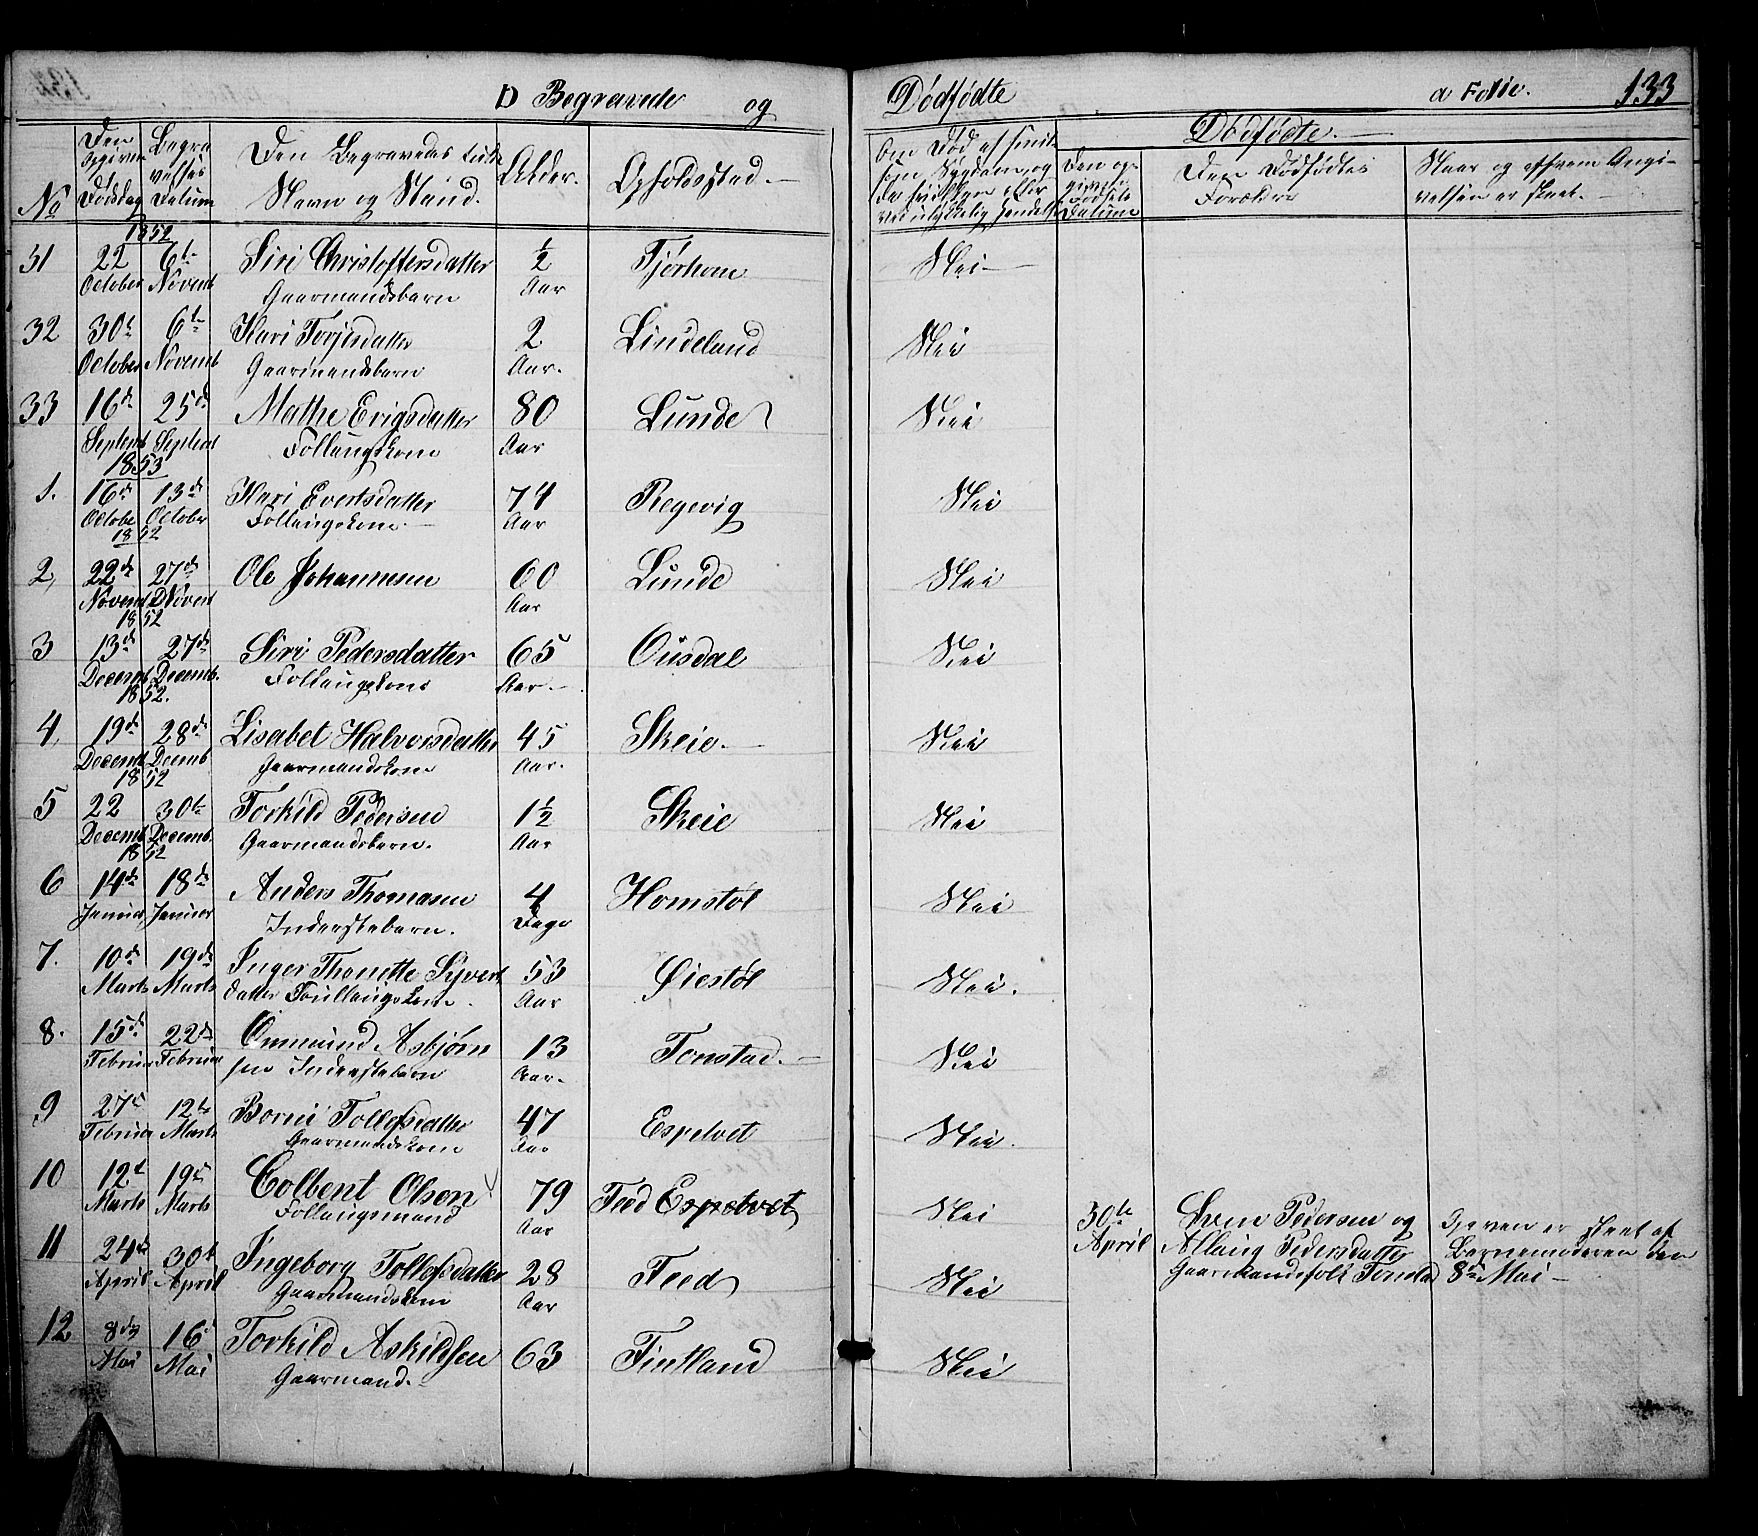 D Begravede og Dødfødte a Folie. 133
No
Den opgivne Dødsdag
Begravelses Datum
Den Begravedes fulde Navn og Stand.
Alder.
Opholdssted.
Om Død af smitsom Sygdom, og da hvilken eller ved ulykkelig Hendelse
Dødfødte.
Den opgivne Fødsels Datum
Den Dødfødtes Forældre
Naar og af hvem Angivelsen er skeet.
1852
31 22 October 6te Novemb Siri Christoffersdatter Gaarmandsbarn ½ Aar Tjørhom Nei
32 30te October 6te Novemb Kari Torjisdatter Gaarmandsbarn 2 Aar. Lindeland Nei
33 16de Septemb 25de Septemb Mathe Erigsdatter Follaugskone 80 Aar Lunde Nei
1853
1. 16de October 1852 13de October Kari Evertsdatter Follaugskone. 74 Aar Regevig Nei
2, 22de Novemb 1852 27de Novemb Ole Johannesen 60 Aar Lunde Nei
3 13de Decemb 1852. 27de Decemb. Siri Pedersdatter Follaugskone 65 Aar. Ousdal Nei
4, 19de Decemb 1852 28de Decemb Lisabet Halvorsdatter Gaarmandskone 45 Aar. Skeie. Nei
5 22 Decemb 1852 30te Decemb. Torkild Pedersen Gaarmandsbarn. 1½ Aar Skeie Nei
6 14de Januar 18de Januar Anders Thomasen Inderstebarn. 4 Dage Homstøl Nei
7. 10de Marts 19de Marts Inger Thonette Syvertsdatter Foullaugskone. 53 Aar Øiestøl Nei.
8. 15de Februar 22de Februar Ommund Asbjørnsen Inderstebarn 13 Aar. Tonstad. Nei
9 27de Februar 12te Marts Borni Tollefsdatter Gaarmandskone 47 Aar Espetvet Nei.
10 12te Marts 19de Marts Colbent Olsen Follaugsmand 79 Aar Feed Espetvet Nei
30te April Sven Pedersen og Allaug Pedersdatter Gaarmandsfolk Tonstad
er skeet af Barnemoderen den 8de Mai
11 24de April 30te April Ingeborg Tollefsdatter Gaarmandskone 28 Aar Feed Nei
12 8de Mai 16de Mai Torkild Askildsen Gaarmand. 63 Fintland Nei